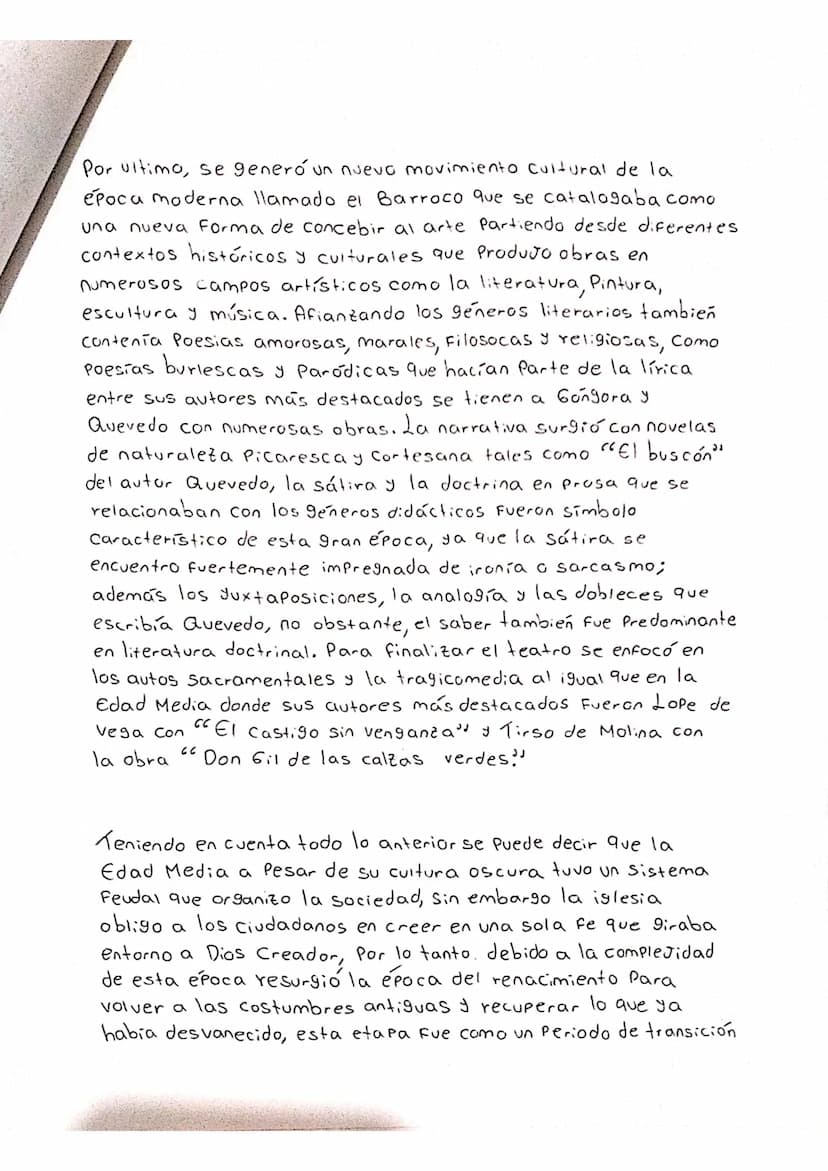 Por ultimo, se generó un nuevo movimiento cultural de la
época moderna llamado el Barroco que se catalogaba como
una nueva forma de concebir al arte partiendo desde diferentes
contextos históricos y culturales que produjo obras en
numerosos campos artísticos como la literatura, pintura,
escultura y música. Afianzando los géneros literarios también
contenía poesías amorosas, marales, filosocas y religiosas, como
poesías burlescas y paródicas que hacían parte de la lírica
entre sus autores más destacados se tienen a Góngora y
Quevedo con numerosas obras. La narrativa surgió con novelas
de naturaleza picaresca y cortesana tales como “El buscón”
del autor Quevedo, la sátira y la doctrina en prosa que se
relacionaban con los géneros didácticos fueron símbolo
característico de esta gran época, ya que la sátira se
encuentro fuertemente impregnada de ironía o sarcasmo;
además los yuxtaposiciones, la analogía y las dobleces que
escribía Quevedo, no obstante, el saber también fue predominante
en literatura doctrinal. Para finalizar el teatro se enfocó en
los autos sacramentales y la tragicomedia al igual que en la
Edad Media donde sus autores más destacados fueron Lope de
Vega con “El castigo sin venganza” y Tirso de Molina con
la obra “Don Gil de las calzas verdes.”
Teniendo en cuenta todo lo anterior se puede decir que la
Edad Media a pesar de su cultura oscura tuvo un sistema
feudal que organizo la sociedad, sin embargo la iglesia
obligo a los ciudadanos en creer en una sola fe que giraba
entorno a Dios Creador, por lo tanto. debido a la complejidad
de esta época resurgió la época del renacimiento para
volver a las costumbres antiguas y recuperar lo que ya
había desvanecido, esta etapa fue como un periodo de transición